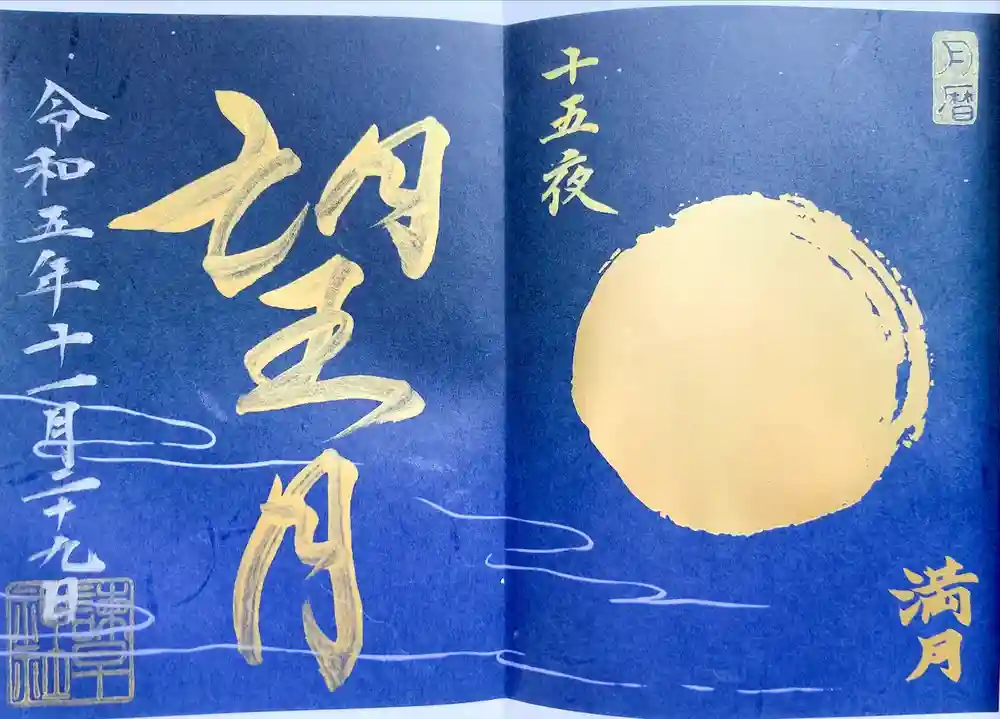 月暦
十五夜
満月
望月
令和五年十一月二十九日
諫早神社